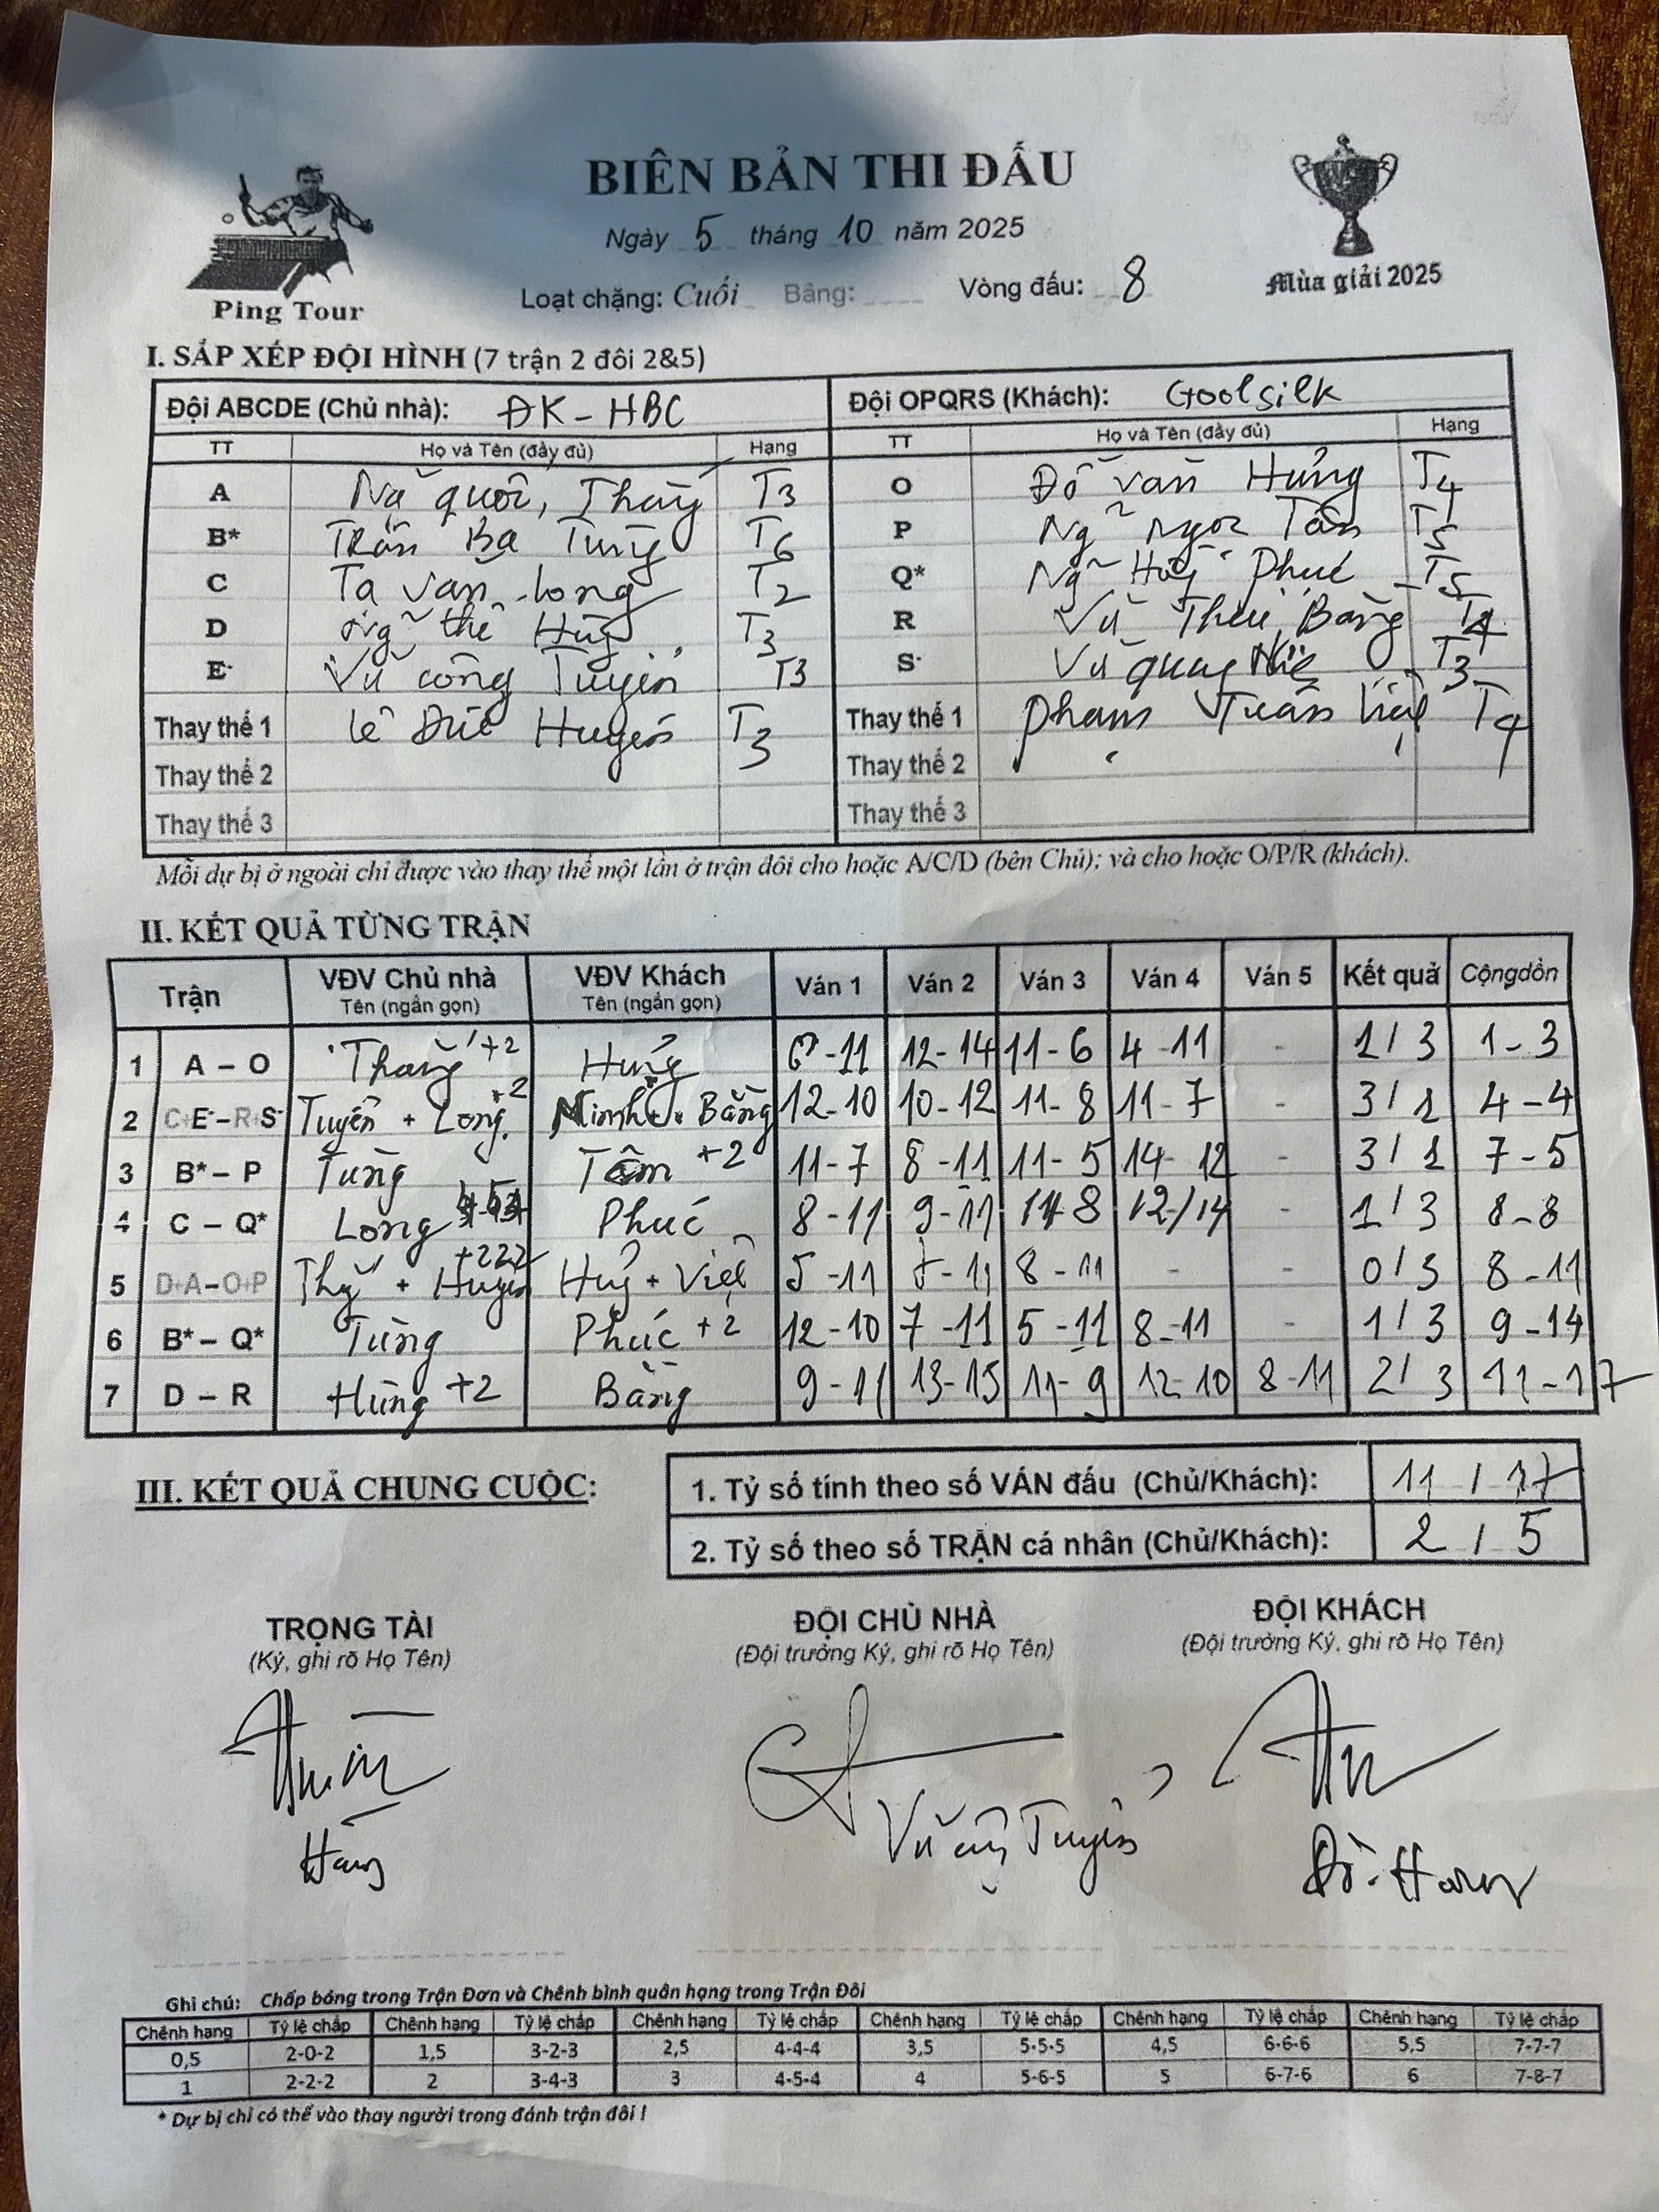 BIÊN BẢN THI ĐẤU
Ngày 5 tháng 10 năm 2025
Loạt chặng: Cuối Bảng: Vòng đấu: 8
Ping Tour
Mùa giải 2025
I. SẮP XẾP ĐỘI HÌNH (7 trận 2 đôi 2&5)
Đội ABCDE (Chủ nhà): ĐK-HBC Đội OPQRS (Khách): Goolsilk
TT Họ và Tên (đầy đủ) Hạng TT Họ và Tên (đầy đủ) Hạng
A Thắng T3 O Đỗ Văn Hưng T4
B* Trần Bá Tùng T6 P Ngọc Tâm T5
C Tạ Văn Long T2 Q* Huy Phúc T5
D thế Hùng T3 R Vũ Bằng T4
E- Vũ Công Tuyển T3 S- Vũ quang T3
Thay thế 1 Lê Đức Huyên T3 Thay thế 1 Phạm Tuấn Việt T4
Thay thế 2 Thay thế 2
Thay thế 3 Thay thế 3
Mỗi dự bị ở ngoài chỉ được vào thay thế một lần ở trận đôi cho hoặc A/C/D (bên Chủ); và cho hoặc O/P/R (khách).
II. KẾT QUẢ TỪNG TRẬN
Trận VĐV Chủ nhà VĐV Khách Ván 1 Ván 2 Ván 3 Ván 4 Ván 5 Kết quả Cộng dồn
Tên (ngắn gọn) Tên (ngắn gọn)
1 A – O Thắng +2 Hưng 6-11 12-14 11-6 4-11 - 1/3 1-3
2 C+E-–R+S- Tuyển + Long +2 Bằng 12-10 10-12 11-8 11-7 - 3/1 4-4
3 B* – P Tùng Tâm +2 11-7 8-11 11-5 14-12 - 3/1 7-5
4 C – Q* Long Phúc 8-11 9-11 11-8 12/14 - 1/3 8-8
5 D+A–O+P + Huyên +222 + Việt 5-11 11 8-11 - - 0/3 8-11
6 B* – Q* Tùng Phúc +2 12-10 7-11 5-11 8-11 - 1/3 9-14
7 D – R Hùng +2 Bằng 9-11 13-15 11-9 12-10 8-11 2/3 11-17
III. KẾT QUẢ CHUNG CUỘC:
1. Tỷ số tính theo số VÁN đấu (Chủ/Khách): 11/17
2. Tỷ số theo số TRẬN cá nhân (Chủ/Khách): 2/5
TRỌNG TÀI ĐỘI CHỦ NHÀ ĐỘI KHÁCH
(Ký, ghi rõ Họ Tên) (Đội trưởng Ký, ghi rõ Họ Tên) (Đội trưởng Ký, ghi rõ Họ Tên)
Vũ Tuyển
Ghi chú: Chấp bóng trong Trận Đơn và Chênh bình quân hạng trong Trận Đôi
Chênh hạng Tỷ lệ chấp Chênh hạng Tỷ lệ chấp Chênh hạng Tỷ lệ chấp Chênh hạng Tỷ lệ chấp Chênh hạng Tỷ lệ chấp Chênh hạng Tỷ lệ chấp
0,5 2-0-2 1,5 3-2-3 2,5 4-4-4 3,5 5-5-5 4,5 6-6-6 5,5 7-7-7
1 2-2-2 2 3-4-3 3 4-5-4 4 5-6-5 5 6-7-6 6 7-8-7
* Dự bị chỉ có thể vào thay người trong đánh trận đôi !